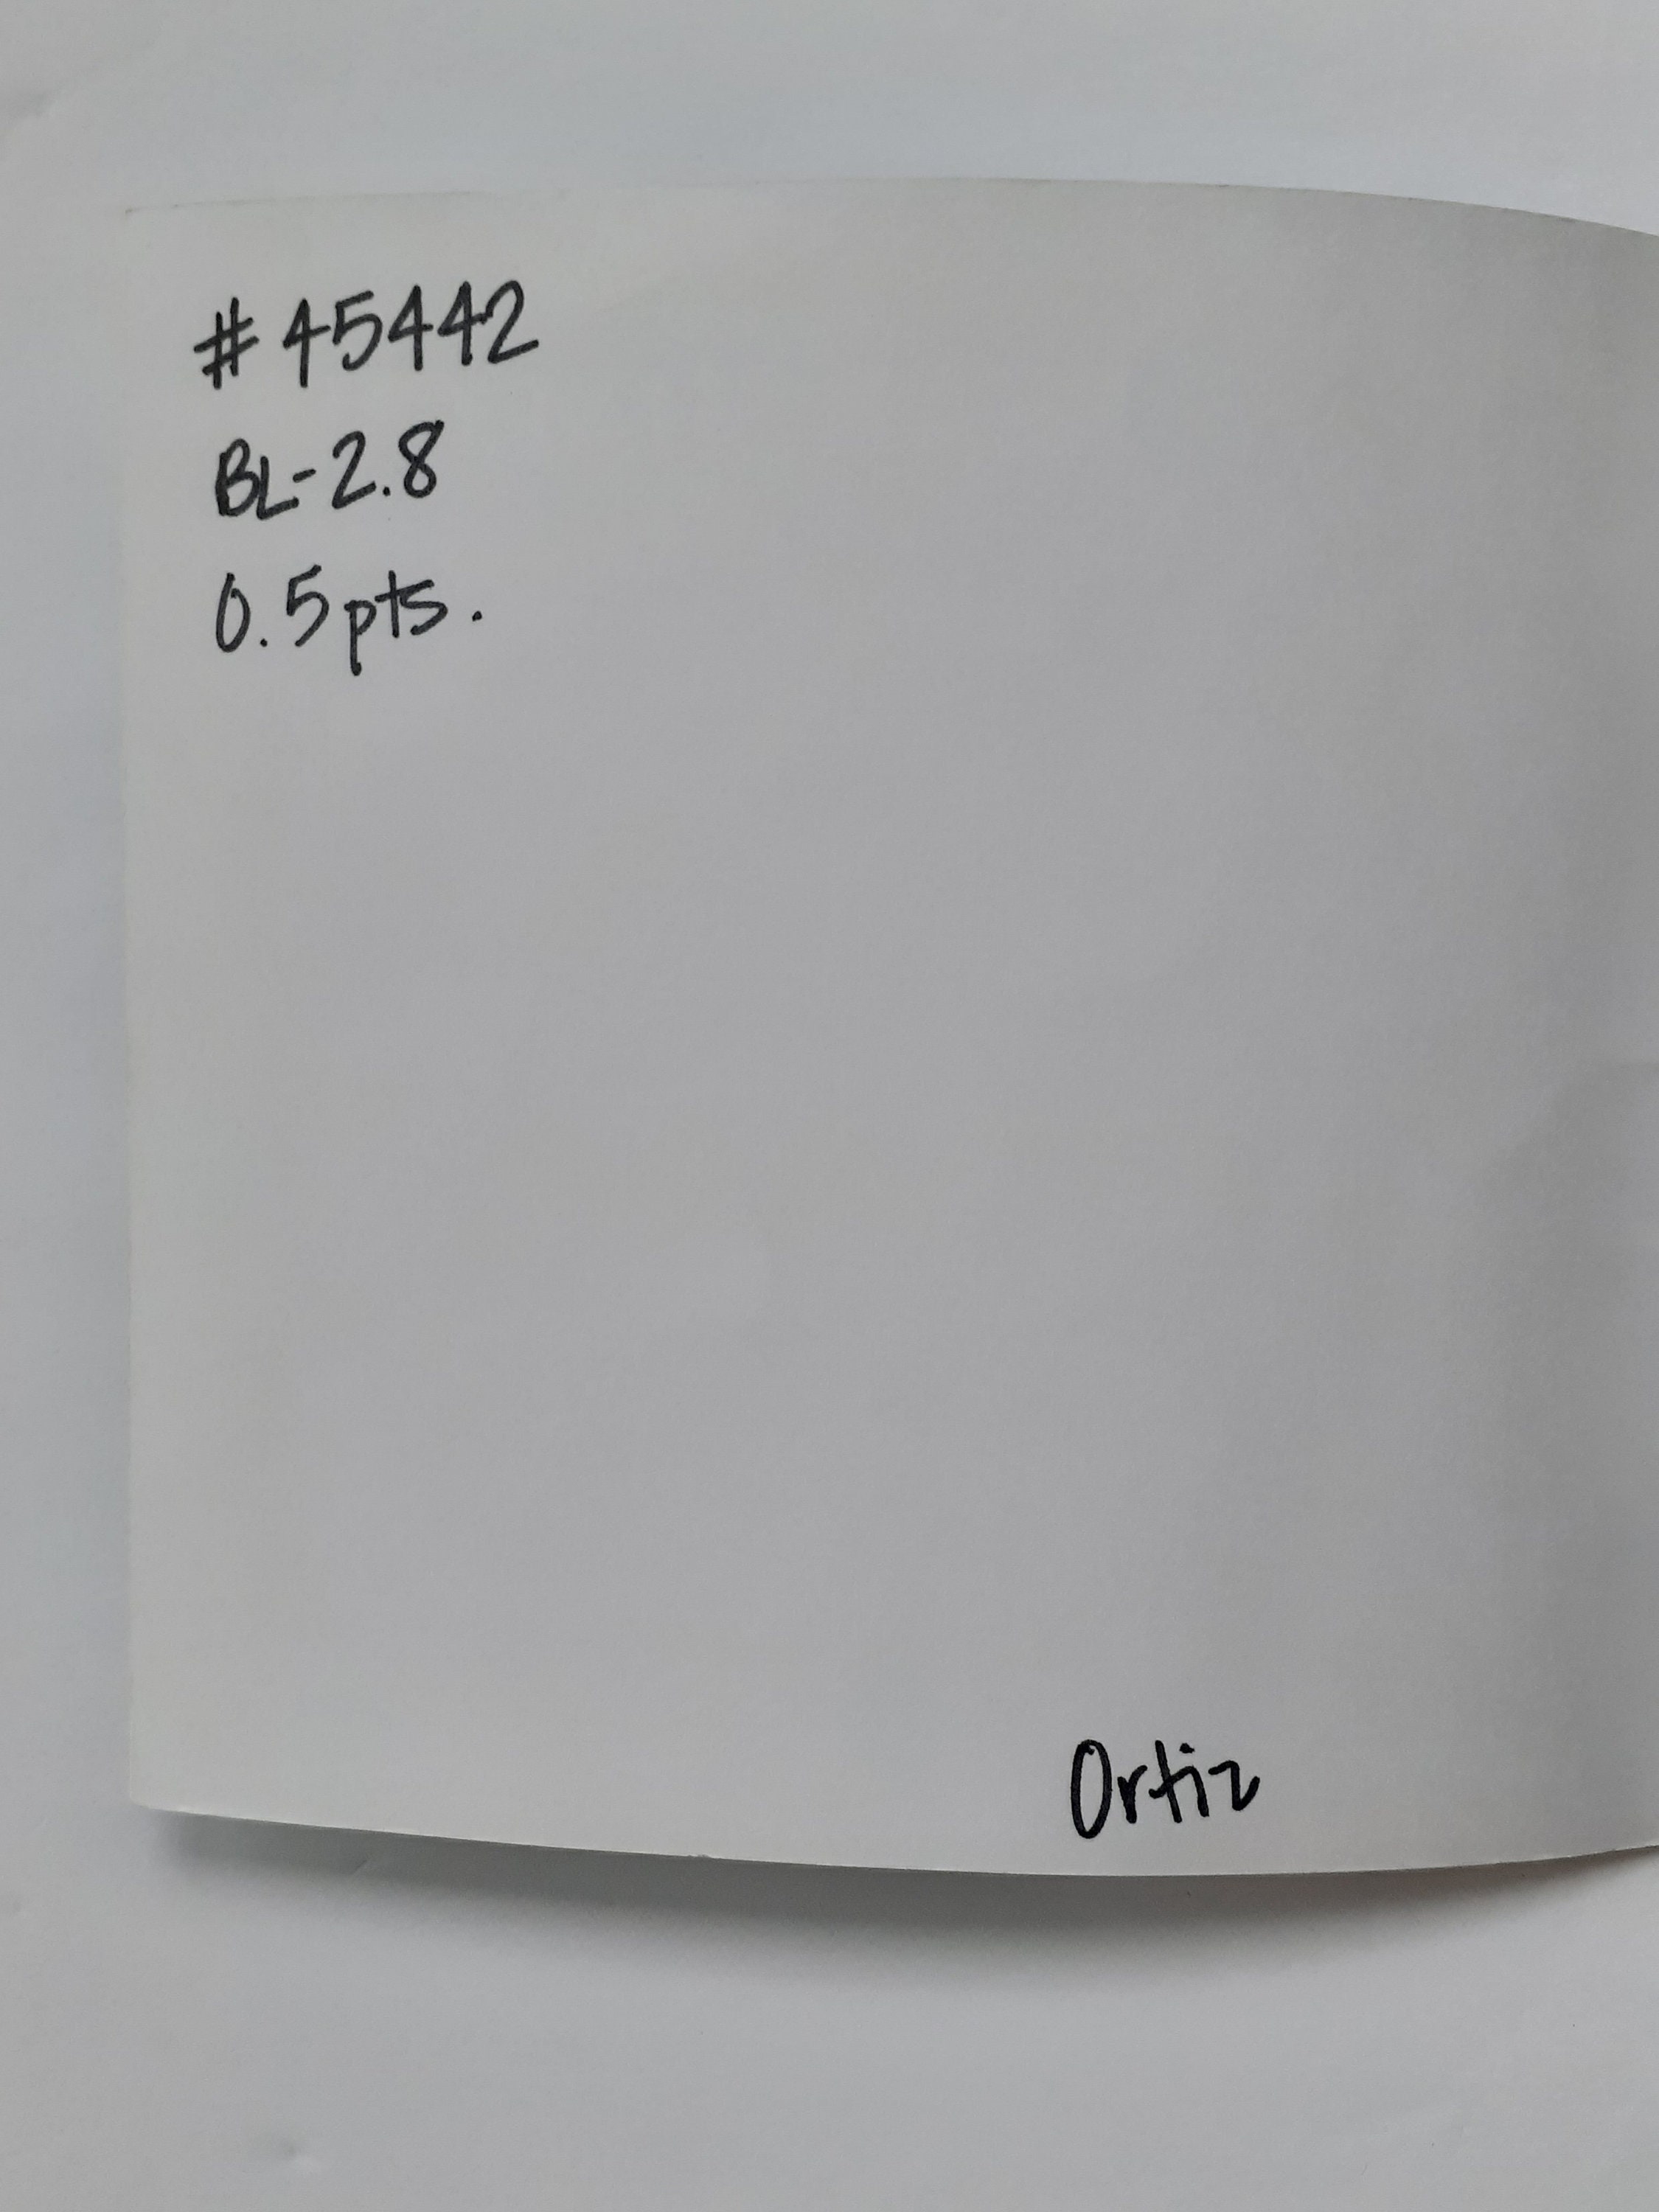 #45442
BL-2.8
0.5pts.
Ortiz